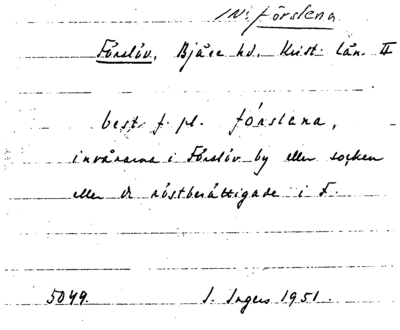 IN: förslena
Förslöv, Bjäre hd. Krist. län. II
best. f. pl. fórslena,
invånarna i Förslöv by eller socken
eller de röstberättigade i F.
5049. I. Ingers 1951.